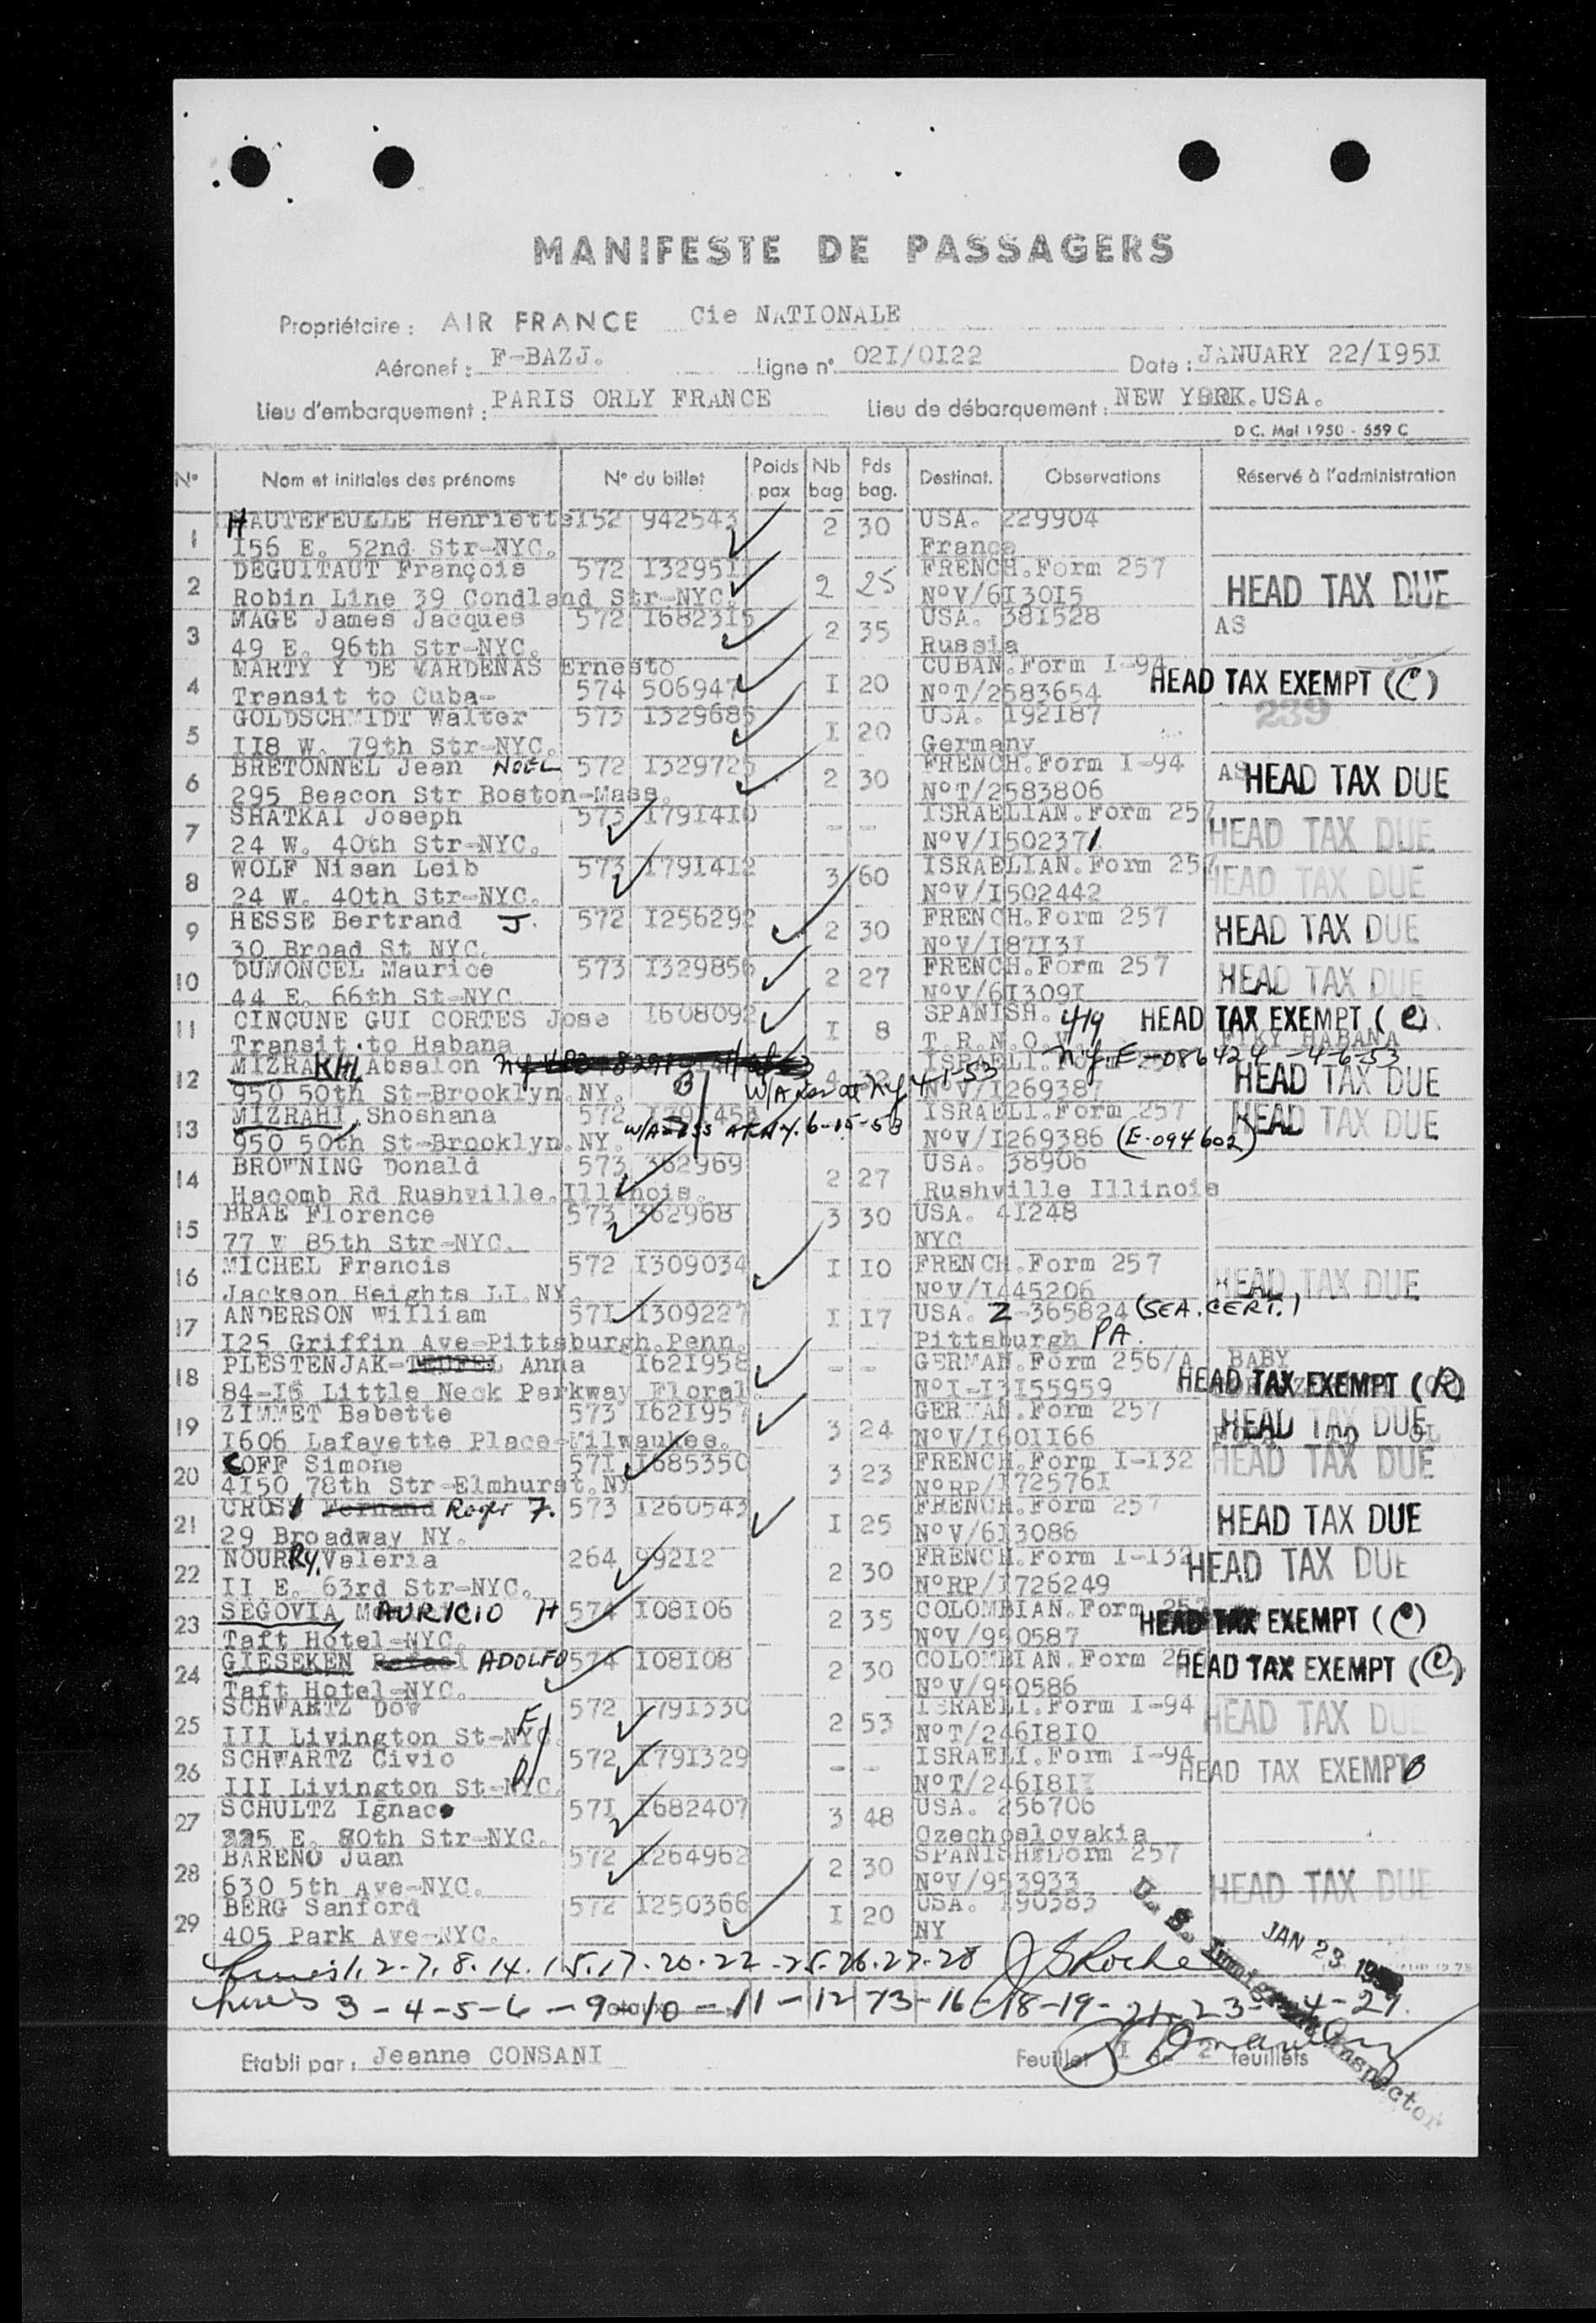 MANIFESTE DE PASSAGERS
Propriétaire : AIR FRANCE Cie NATIONALE
Aéronef : F-BAZJ. Ligne n° 02I/0I22 Date : JANUARY 22/I95I
Lieu d'embarquement : PARIS ORLY FRANCE Lieu de débarquement : NEW YORK.USA.
D C. Mai 1950 - 559 C
N° Nom et initiales des prénoms N° du billet Poids pax Nb bag Pds bag. Destinat. Observations Réservé à l'administration
1 HAUTEFEUILLE Henriette I52 942543 2 30 USA. 229904
I56 E. 52nd Str-NYC. France
2 DEGUITAUT François 572 I32951 2 25 FRENCH.Form 257 HEAD TAX DUE
Robin Line 39 Condland Str-NYC. N°V/6I30I5
3 MAGE James Jacques 572 I6823I5 2 35 USA. 38I528 AS
49 E. 96th Str-NYC. Russia
4 MARTY Y DE CARDENAS Ernesto CUBAN.Form I-94 HEAD TAX EXEMPT (C)
Transit to Cuba- 574 506947 I 20 N°T/2583654
239
5 GOLDSCHMIDT Walter 573 I329685 I 20 USA. I92I87
II8 W. 79th Str-NYC. Germany
6 BRETONNEL Jean NOEL 572 I329725 2 30 FRENCH.Form I-94 AS HEAD TAX DUE
295 Beacon Str Boston-Mass. N°T/2583806
7 SHATKAI Joseph 573 I79I4I0 - - ISRAELIAN.Form 257 HEAD TAX DUE
24 W. 40th Str-NYC. N°V/I502371
8 WOLF Nisan Leib 573 I79I4I2 3 60 ISRAELIAN.Form 257 HEAD TAX DUE
24 W. 40th Str-NYC. N°V/I502442
9 HESSE Bertrand J. 572 I256292 2 30 FRENCH.Form 257 HEAD TAX DUE
30 Broad St NYC. N°V/I87I3I
10 DUMONCEL Maurice 573 I329856 2 27 FRENCH.Form 257 HEAD TAX DUE
44 E. 66th St-NYC. N°V/6I309I
11 CINCUNE GUI CORTES Jose I608092 I 8 SPANISH. 419 HEAD TAX EXEMPT (C)
Transit to Habana T.R.N.O. HABANA
12 MIZRAKHI Absalon 4 32 ISRAELI. NY. E-086424 -4-6-53 HEAD TAX DUE
950 50th St-Brooklyn.NY. N°V/I269387
13 MIZRAHI Shoshana 572 I79I45 W/A 6-15-53 ISRAELI.Form 257 HEAD TAX DUE
950 50th St-Brooklyn.NY. N°V/I269386 (E-094602)
14 BROWNING Donald 573 362969 2 27 USA. 38906
Hacomb Rd Rushville.Illinois. Rushville Illinois
15 BRAE Florence 573 362968 3 30 USA. 4I248
77 W 85th Str-NYC. NYC
16 MICHEL Francis 572 I309034 I I0 FRENCH.Form 257 HEAD TAX DUE
Jackson Heights LI.NY. N°V/I445206
17 ANDERSON William 57I I309227 I I7 USA. Z-365824 (SEA. CERT.)
I25 Griffin Ave-Pittsburgh.Penn. Pittsburgh PA.
18 PLESTENJAK- Anna I62I958 - - GERMAN.Form 256/A BABY
84-I6 Little Neck Parkway Floral. N°I-I3I55959 HEAD TAX EXEMPT (R)
19 ZIMMET Babette 573 I62I957 3 24 GERMAN.Form 257 HEAD TAX DUE
I606 Lafayette Place-Milwaukee. N°V/I60II66
20 COFF Simone 57I I685350 3 23 FRENCH.Form I-I32 HEAD TAX DUE
4I50 78th Str-Elmhurst.NY N°RP/I72576I
21 CROS Fernand Roger F. 573 I260543 I 25 FRENCH.Form 257 HEAD TAX DUE
29 Broadway NY. N°V/6I3086
22 NOURRY, Valeria 264 992I2 2 30 FRENCH.Form I-I32 HEAD TAX DUE
II E. 63rd Str-NYC. N°RP/I726249
23 SEGOVIA MAURICIO H 574 I08I06 2 35 COLOMBIAN.Form HEAD TAX EXEMPT (C)
Taft Hotel-NYC. N°V/950587
24 GIESEKEN Rafael ADOLFO 574 I08I08 2 30 COLOMBIAN.Form HEAD TAX EXEMPT (C)
Taft Hotel-NYC. N°V/950586
25 SCHWARTZ Dow 572 I79I330 2 53 ISRAELI.Form I-94 HEAD TAX DUE
III Livington St-NYC. N°T/246I8I0
26 SCHWARTZ Civio 572 I79I329 - - ISRAELI.Form I-94 HEAD TAX EXEMPT
III Livington St-NYC. N°T/246I8I
27 SCHULTZ Ignac 57I I682407 3 48 USA. 256706
225 E. 80th Str-NYC. Czechoslovakia
28 BARENO Juan 572 I264962 2 30 SPANISH 257 HEAD TAX DUE
630 5th Ave-NYC. N°V/953933
29 BERG Sanford 572 I250366 I 20 USA. I90383
405 Park Ave-NYC. NY
1. 2-7. 8. 14. 15. 17. 20. 22 -25. 26. 27. 28 JAN 23
3 - 4 - 5 - 6 - 9 - 10 - 11 - 12 13 - 16 - 18 - 19 - 21 - 23 -
Etabli par : Jeanne CONSANI Feuillet I de 2 feuillets
U. S. Immigrant Inspector